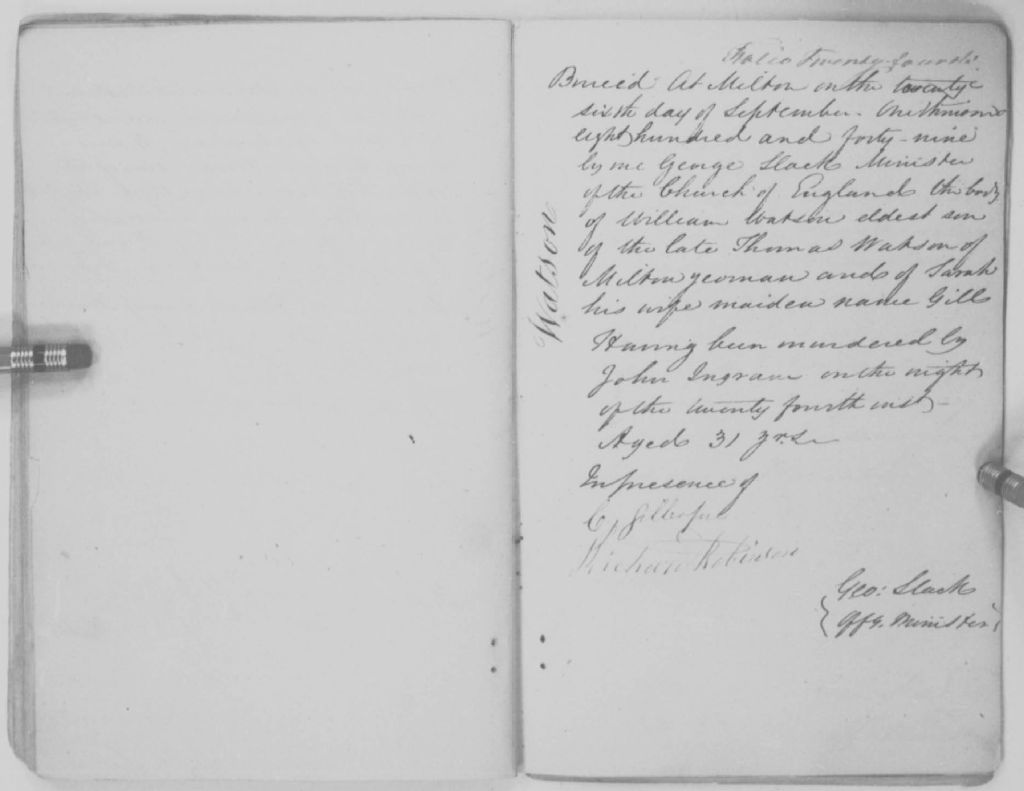 Folio twenty-fourth
Buried At Milton on the twenty
sixth day of September. One thousand
eight hundred and forty-nine
by me George Slack Minister
of the Church of England the body
of William Watson eldest son
of the late Thomas Watson of
Milton yeoman and of Sarah
his wife maiden name Gill
Watson
Having been murdered by
John Ingram on the night
of the twenty fourth inst
Aged 31 yrs.
In presence of
C,
Richard Robinson
Geo: Slack
Offg. Minister